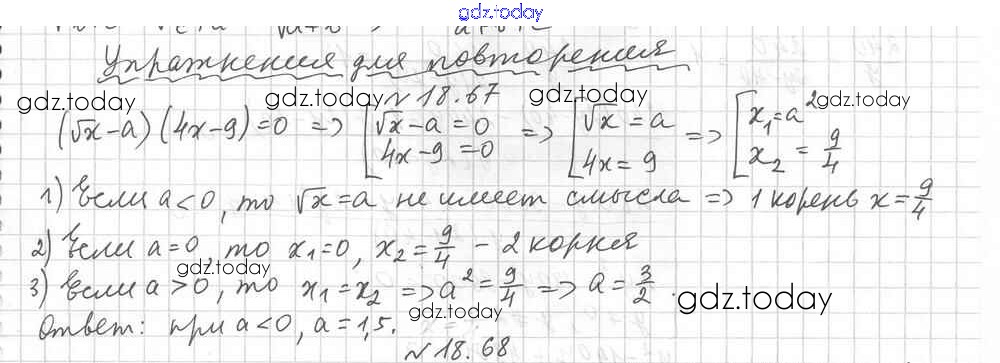 gdz.today
Упражнения для повторения
gdz.today gdz.today № 18.67 gdz.today gdz.today
(√x - a)(4x - 9) = 0 => [√x - a = 0 4x - 9 = 0 => [√x = a 4x = 9 => [x₁ = a² x₂ = 9/4
1) Если a < 0, то √x = a не имеет смысла => 1 корень x = 9/4
2) Если a = 0, то x₁ = 0, x₂ = 9/4 - 2 корня
gdz.today
3) Если a > 0, то x₁ = x₂ => a² = 9/4 => a = 3/2.
gdz.today
Ответ: при a < 0, a = 1,5.
gdz.today
№ 18.68